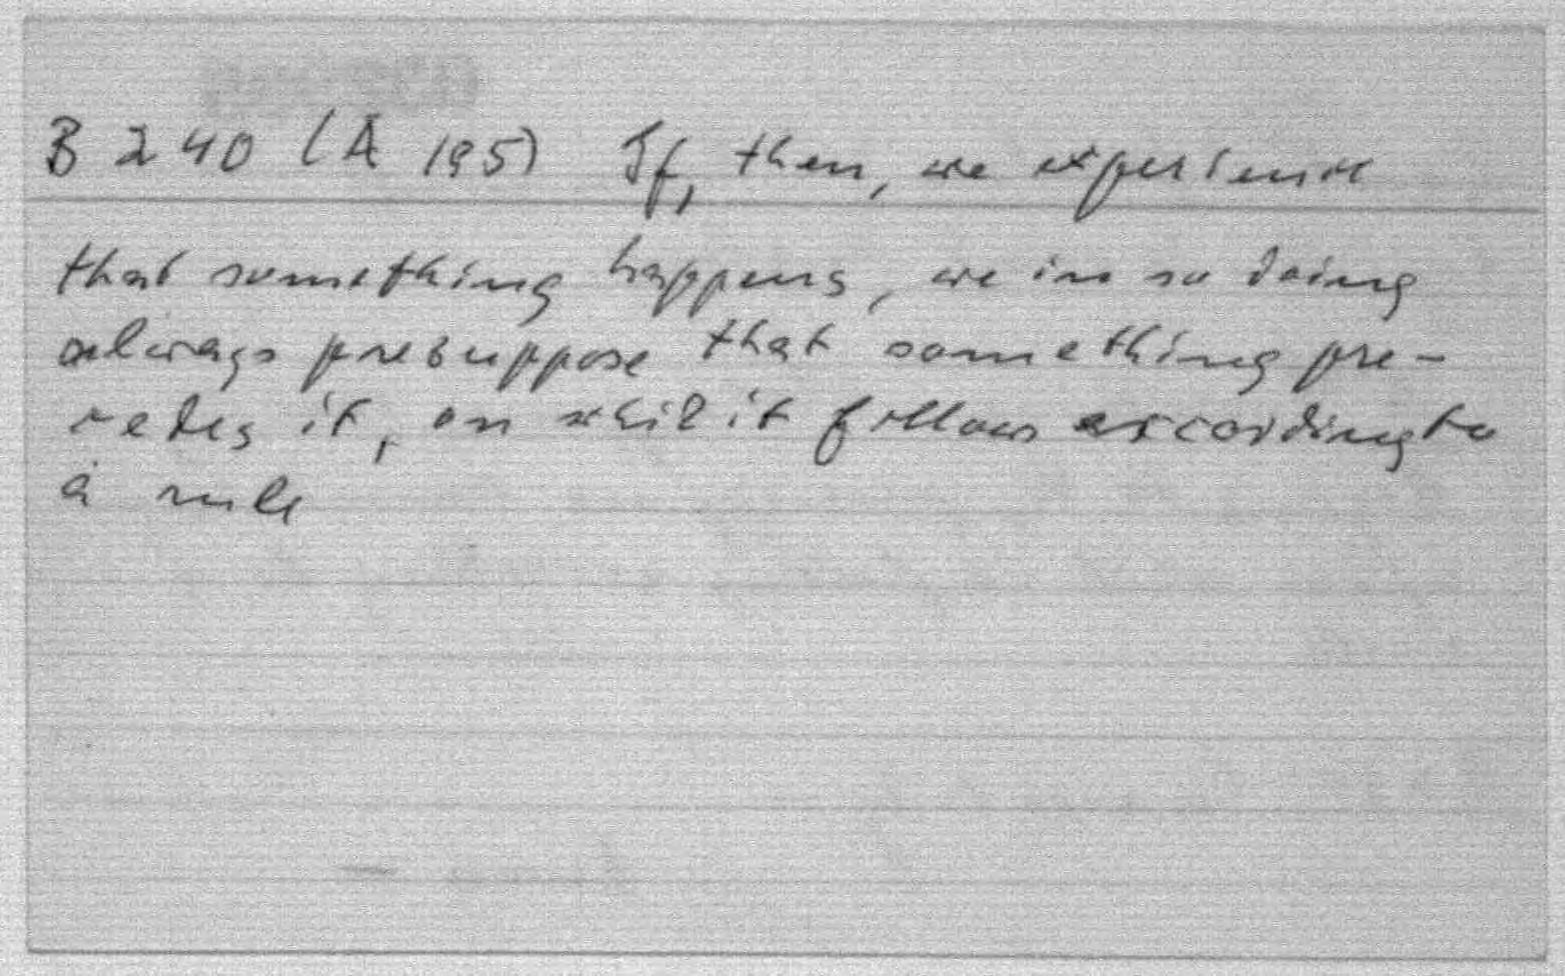 B 240 (A 195) If, then, we experience
that something happens, we in so doing
always presuppose that something pre-
cedes it, on which it follows according to
a rule